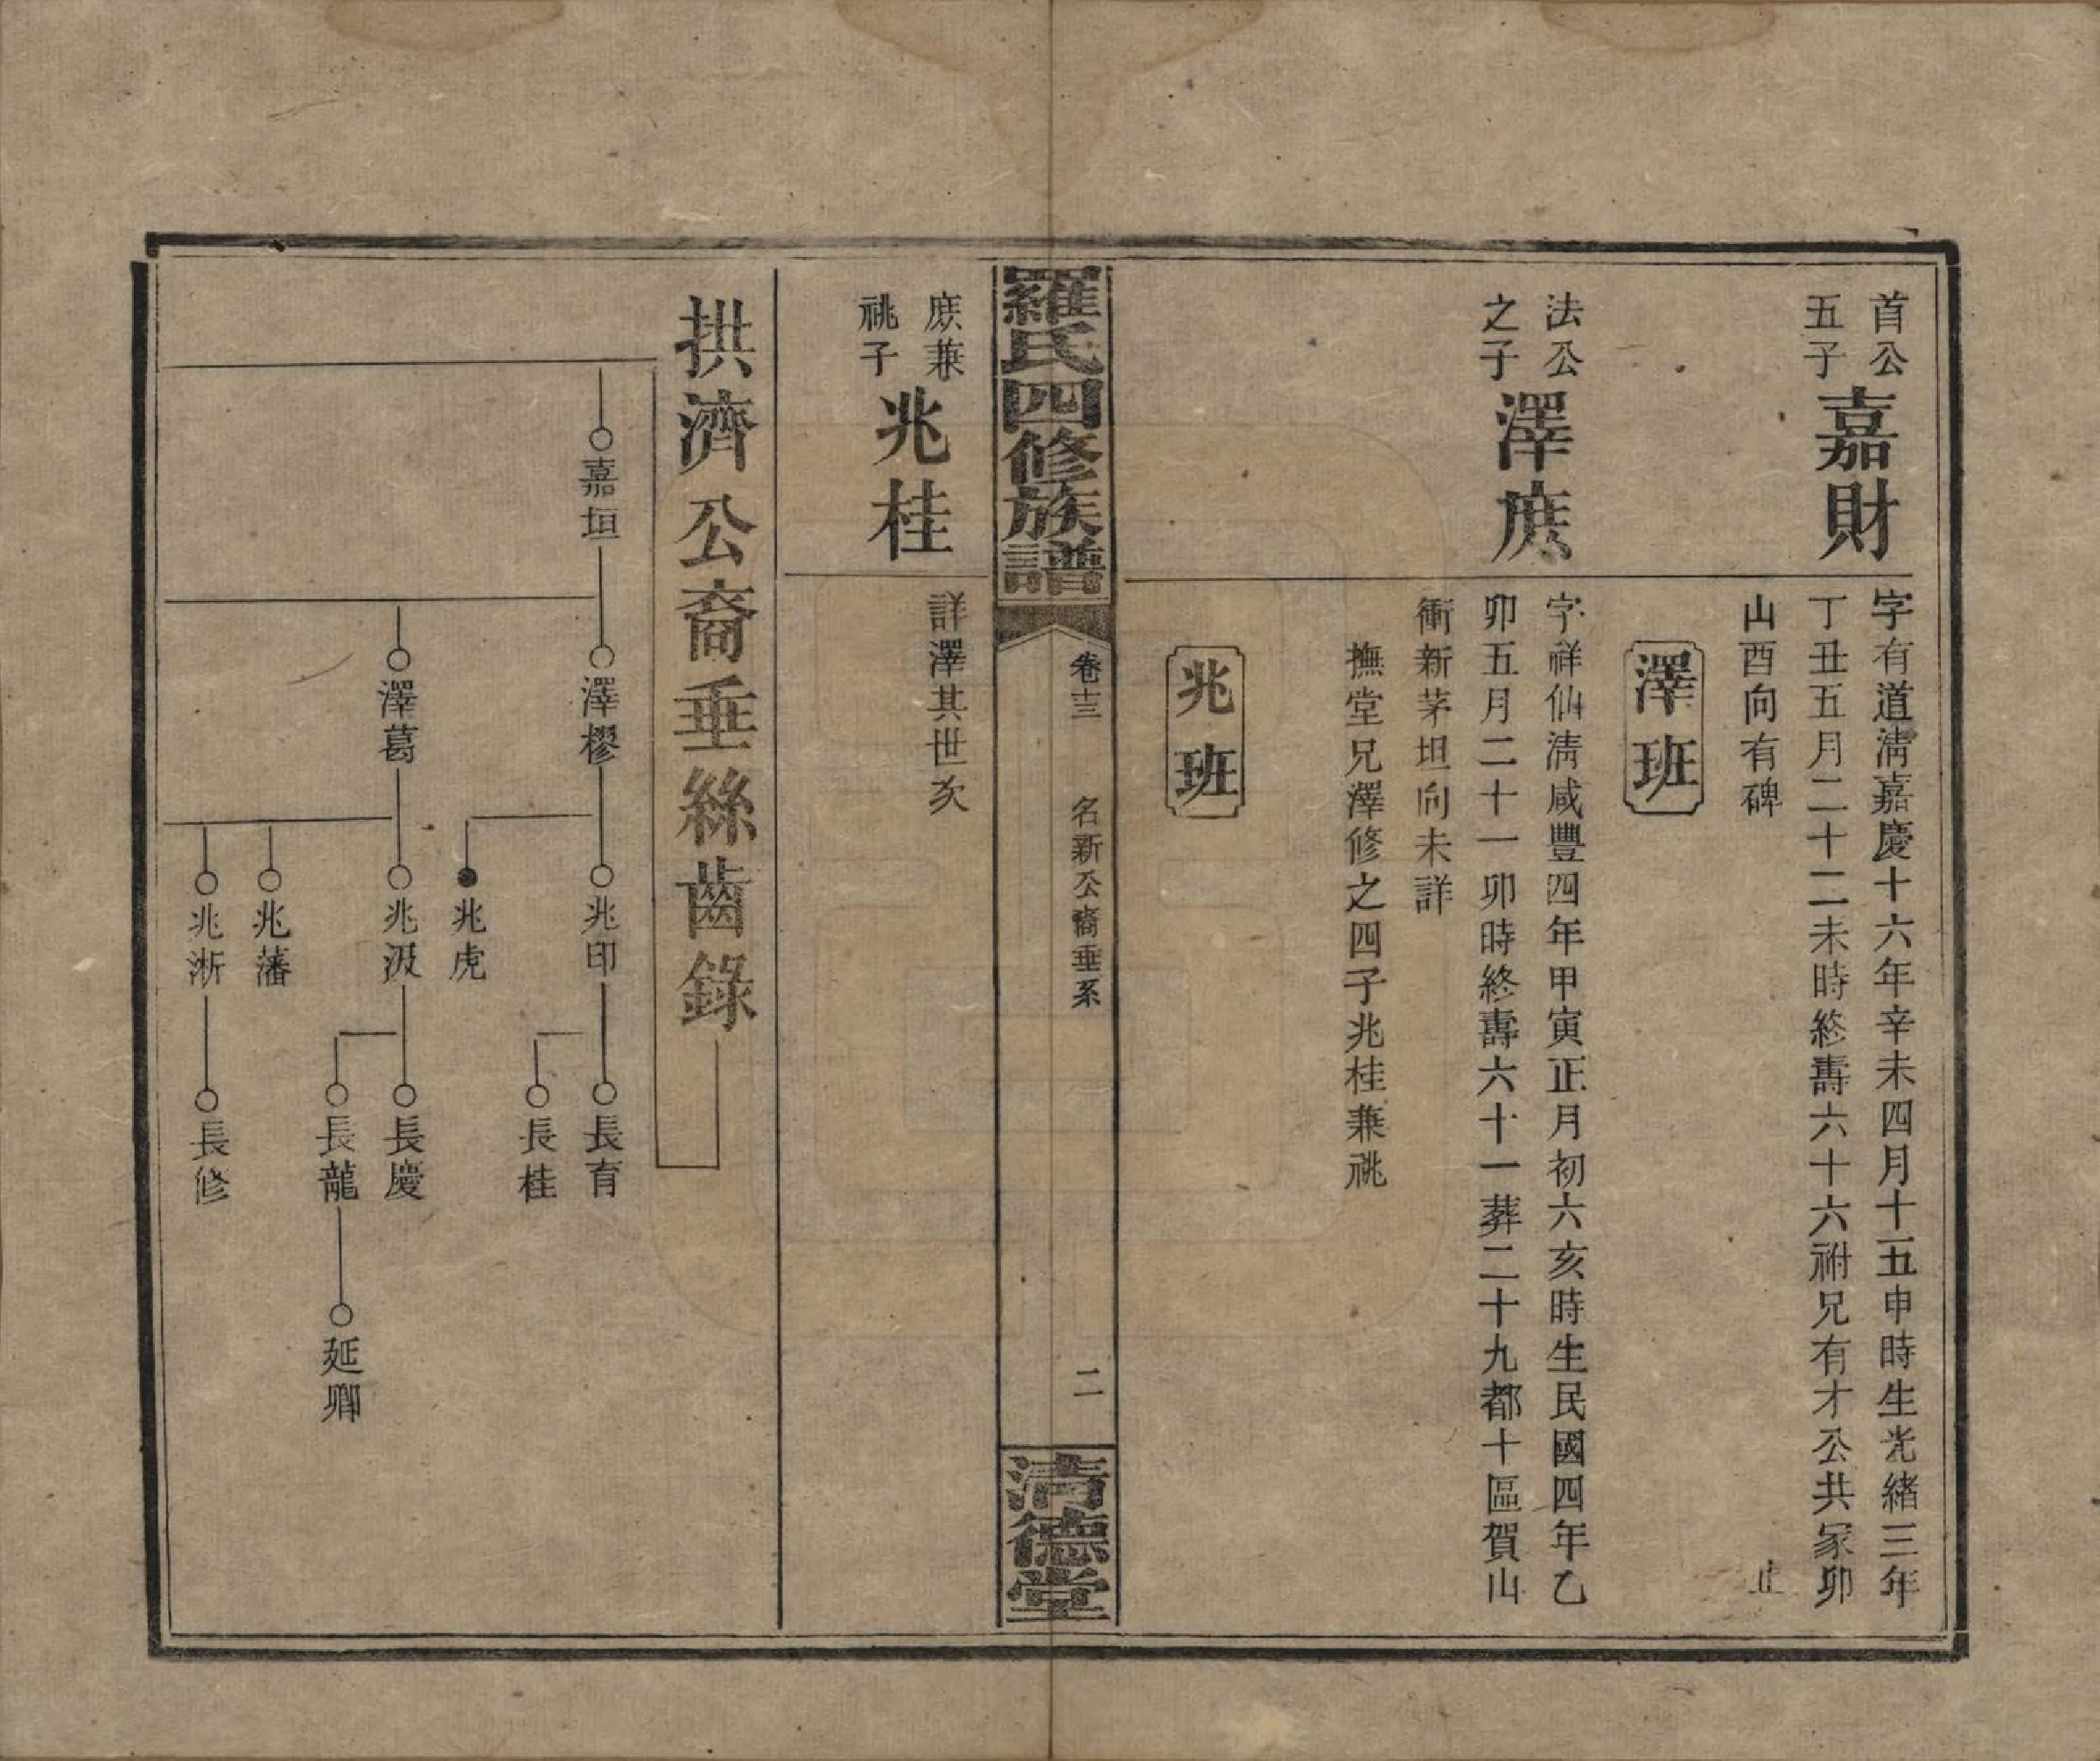 首公
五子
嘉財
字有道淸嘉慶十六年辛未四月十五申時生光緒三年
丁丑五月二十二未時終壽六十六祔兄有才公共冢卯
山酉向有碑
止
澤班
法公
之子
澤庻
字祥仙淸咸豐四年甲寅正月初六亥時生民國四年乙
卯五月二十一卯時終壽六十一葬二十九都十區賀山
衝新茅坦向未詳
撫堂兄澤修之四子兆桂兼祧
兆班
羅氏四修族譜
卷十三
名新公裔垂系
二
淸德堂
庻兼
祧子
兆桂
詳澤其世次
拱濟公裔垂絲齒錄
嘉垣
澤樛
兆印
長育
長桂
兆虎
澤葛
兆汲
長慶
長龍
延卿
兆藩
兆淅
長修